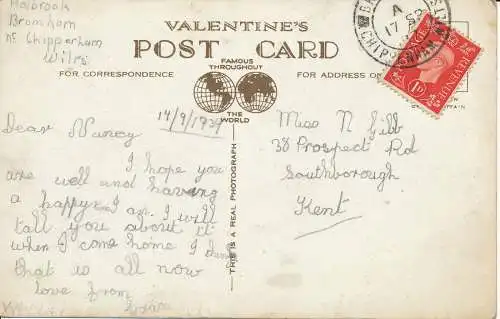 Holbrook
Bromham
nr Chippenham
Wilts
VALENTINE'S
POST CARD
FAMOUS THROUGHOUT
THE WORLD
FOR CORRESPONDENCE
FOR ADDRESS
THIS IS A REAL PHOTOGRAPH
A
17 SP
CHIPPENHAM
POSTAGE
REVENUE
1D
14/9/1937
Dear Nancy
I hope you
are well and having
a happy
I am I will
tell you about it
when I come home I
that is all now
love from
Miss N Gibb
38 Prospect Rd
Southborough
Kent